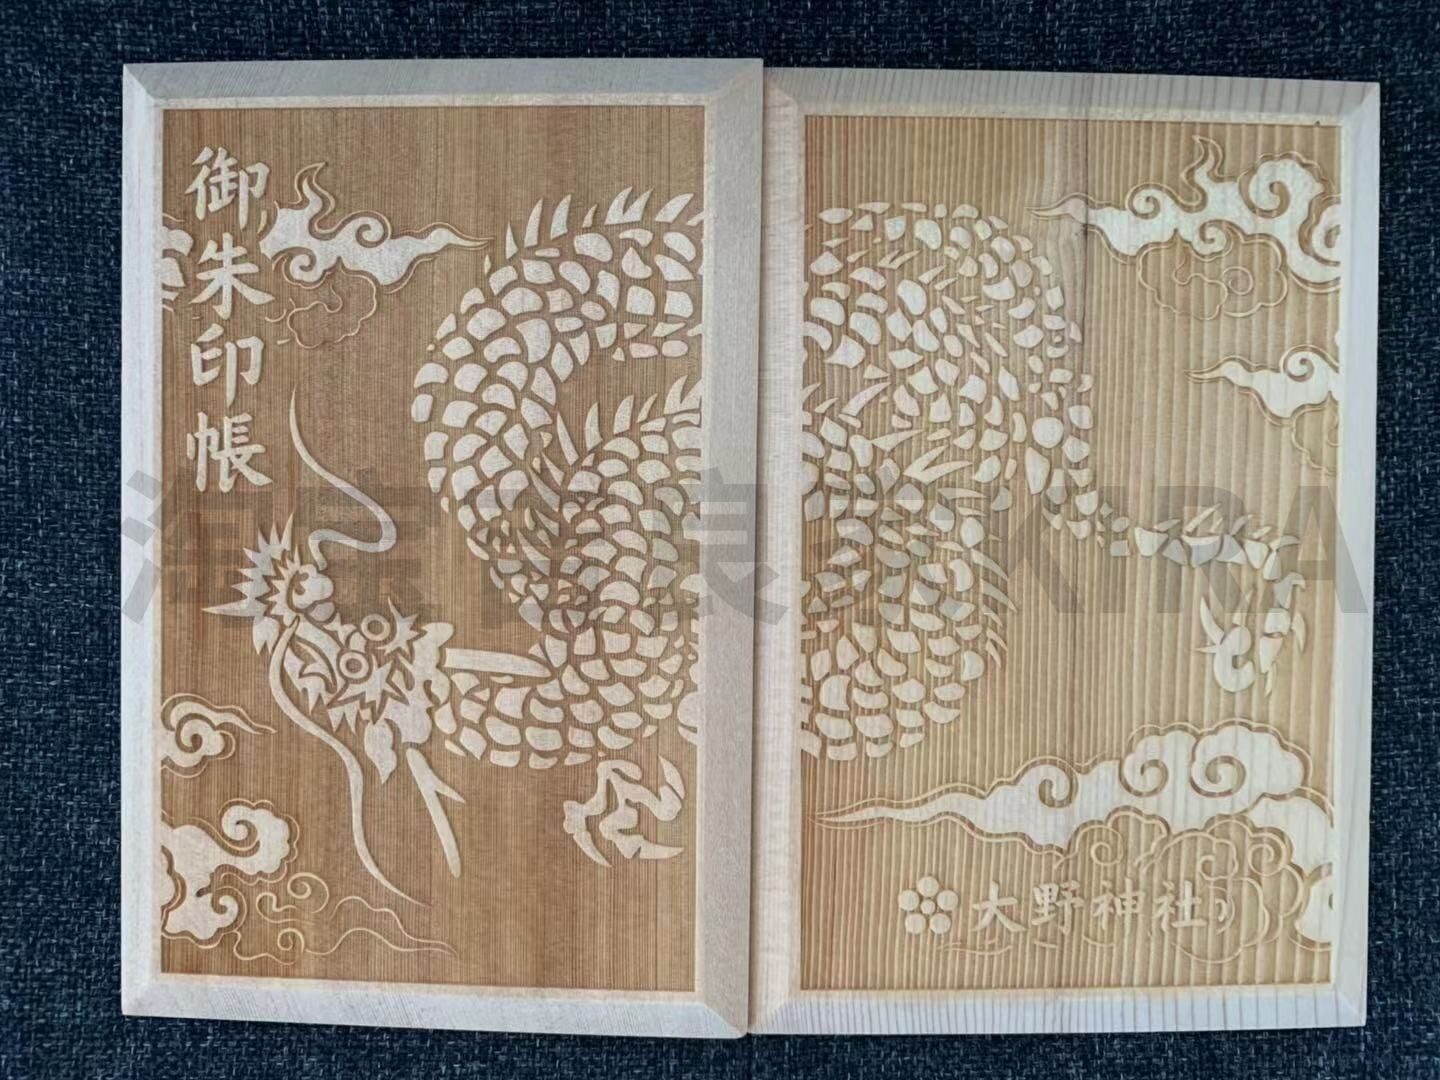 御朱印帳
大野神社